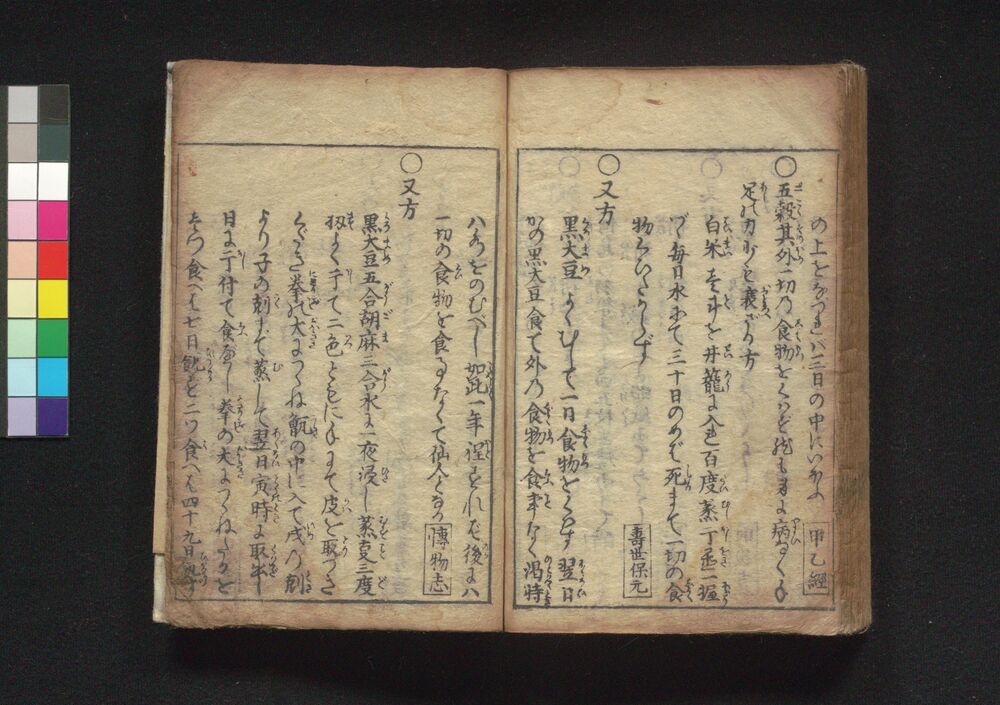 の上をなづれバ三日の中にいゆる 甲乙經
〇五穀其外一切乃食物をくハざれども身よ病なく手
足の力少しも衰ざる方
白米壱升を井籠に入て百度蒸了丞一握
づゝ毎日水にて三十日のめば死まで一切の食
物くいたからず 壽世保元
〇又方
黒大豆よくむして一日食物をくらはず翌日
かの黒大豆食て外乃食物を食事なく渇時
ハ水をのむべし如此一年程すれば後にハ
一切の食物を食事なくて仙人となる 博物志
〇又方
黒大豆五合胡麻三合水に一夜浸し蒸事三度
扨よく干て二色ともに手にて皮を取つき
くだき拳の大につくね甑の中に入て戌の刻
より子の刻まで蒸して翌日寅時に取出
日に干付て食べし拳の大につくねたるを
壱つ食へば七日飽を二ツ食へば四十九日